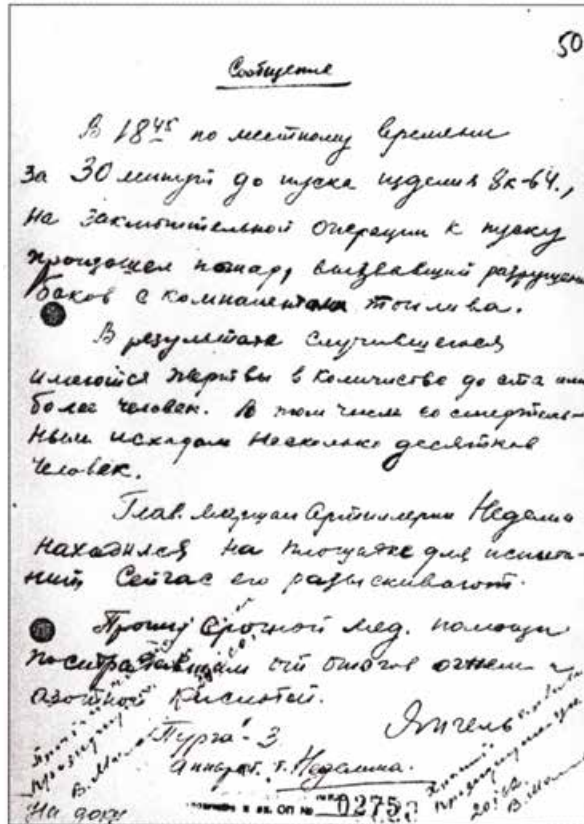 50
Сообщение
В 18 45 по местному времени
за 30 минут до пуска изделия 8к-64.,
на заключительной операции к пуску
произошел пожар, вызвавший разрушение
баков с компонентами топлива.
В результате случившегося
имеются жертвы в количестве до ста или
более человек. В том числе со смертель-
ным исходом несколько десятков
человек.
Глав. маршал Артиллерии Неделин
находился на площадке для испыта-
ний. Сейчас его разыскивают.
Прошу срочной мед. помощи
пострадавшим от ожогов огнем и
азотной кислотой.
Янгель
"Пурга"-3
аппарат т. Неделина.
ОП № 0275